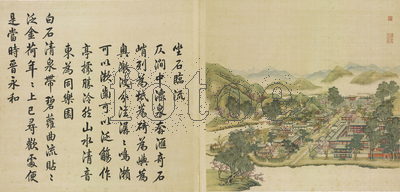 坐石臨流
仄澗中潨泉奔匯奇石
峭列為坻為碕為嶼為
奧激波分注潺潺鳴瀨
可以漱齒可以泛觴作
亭據勝泠然山水清音
東為同樂園
白石清泉帶碧蘿曲流貼貼
泛金荷年年上巳尋歡處便
是當時晉永和